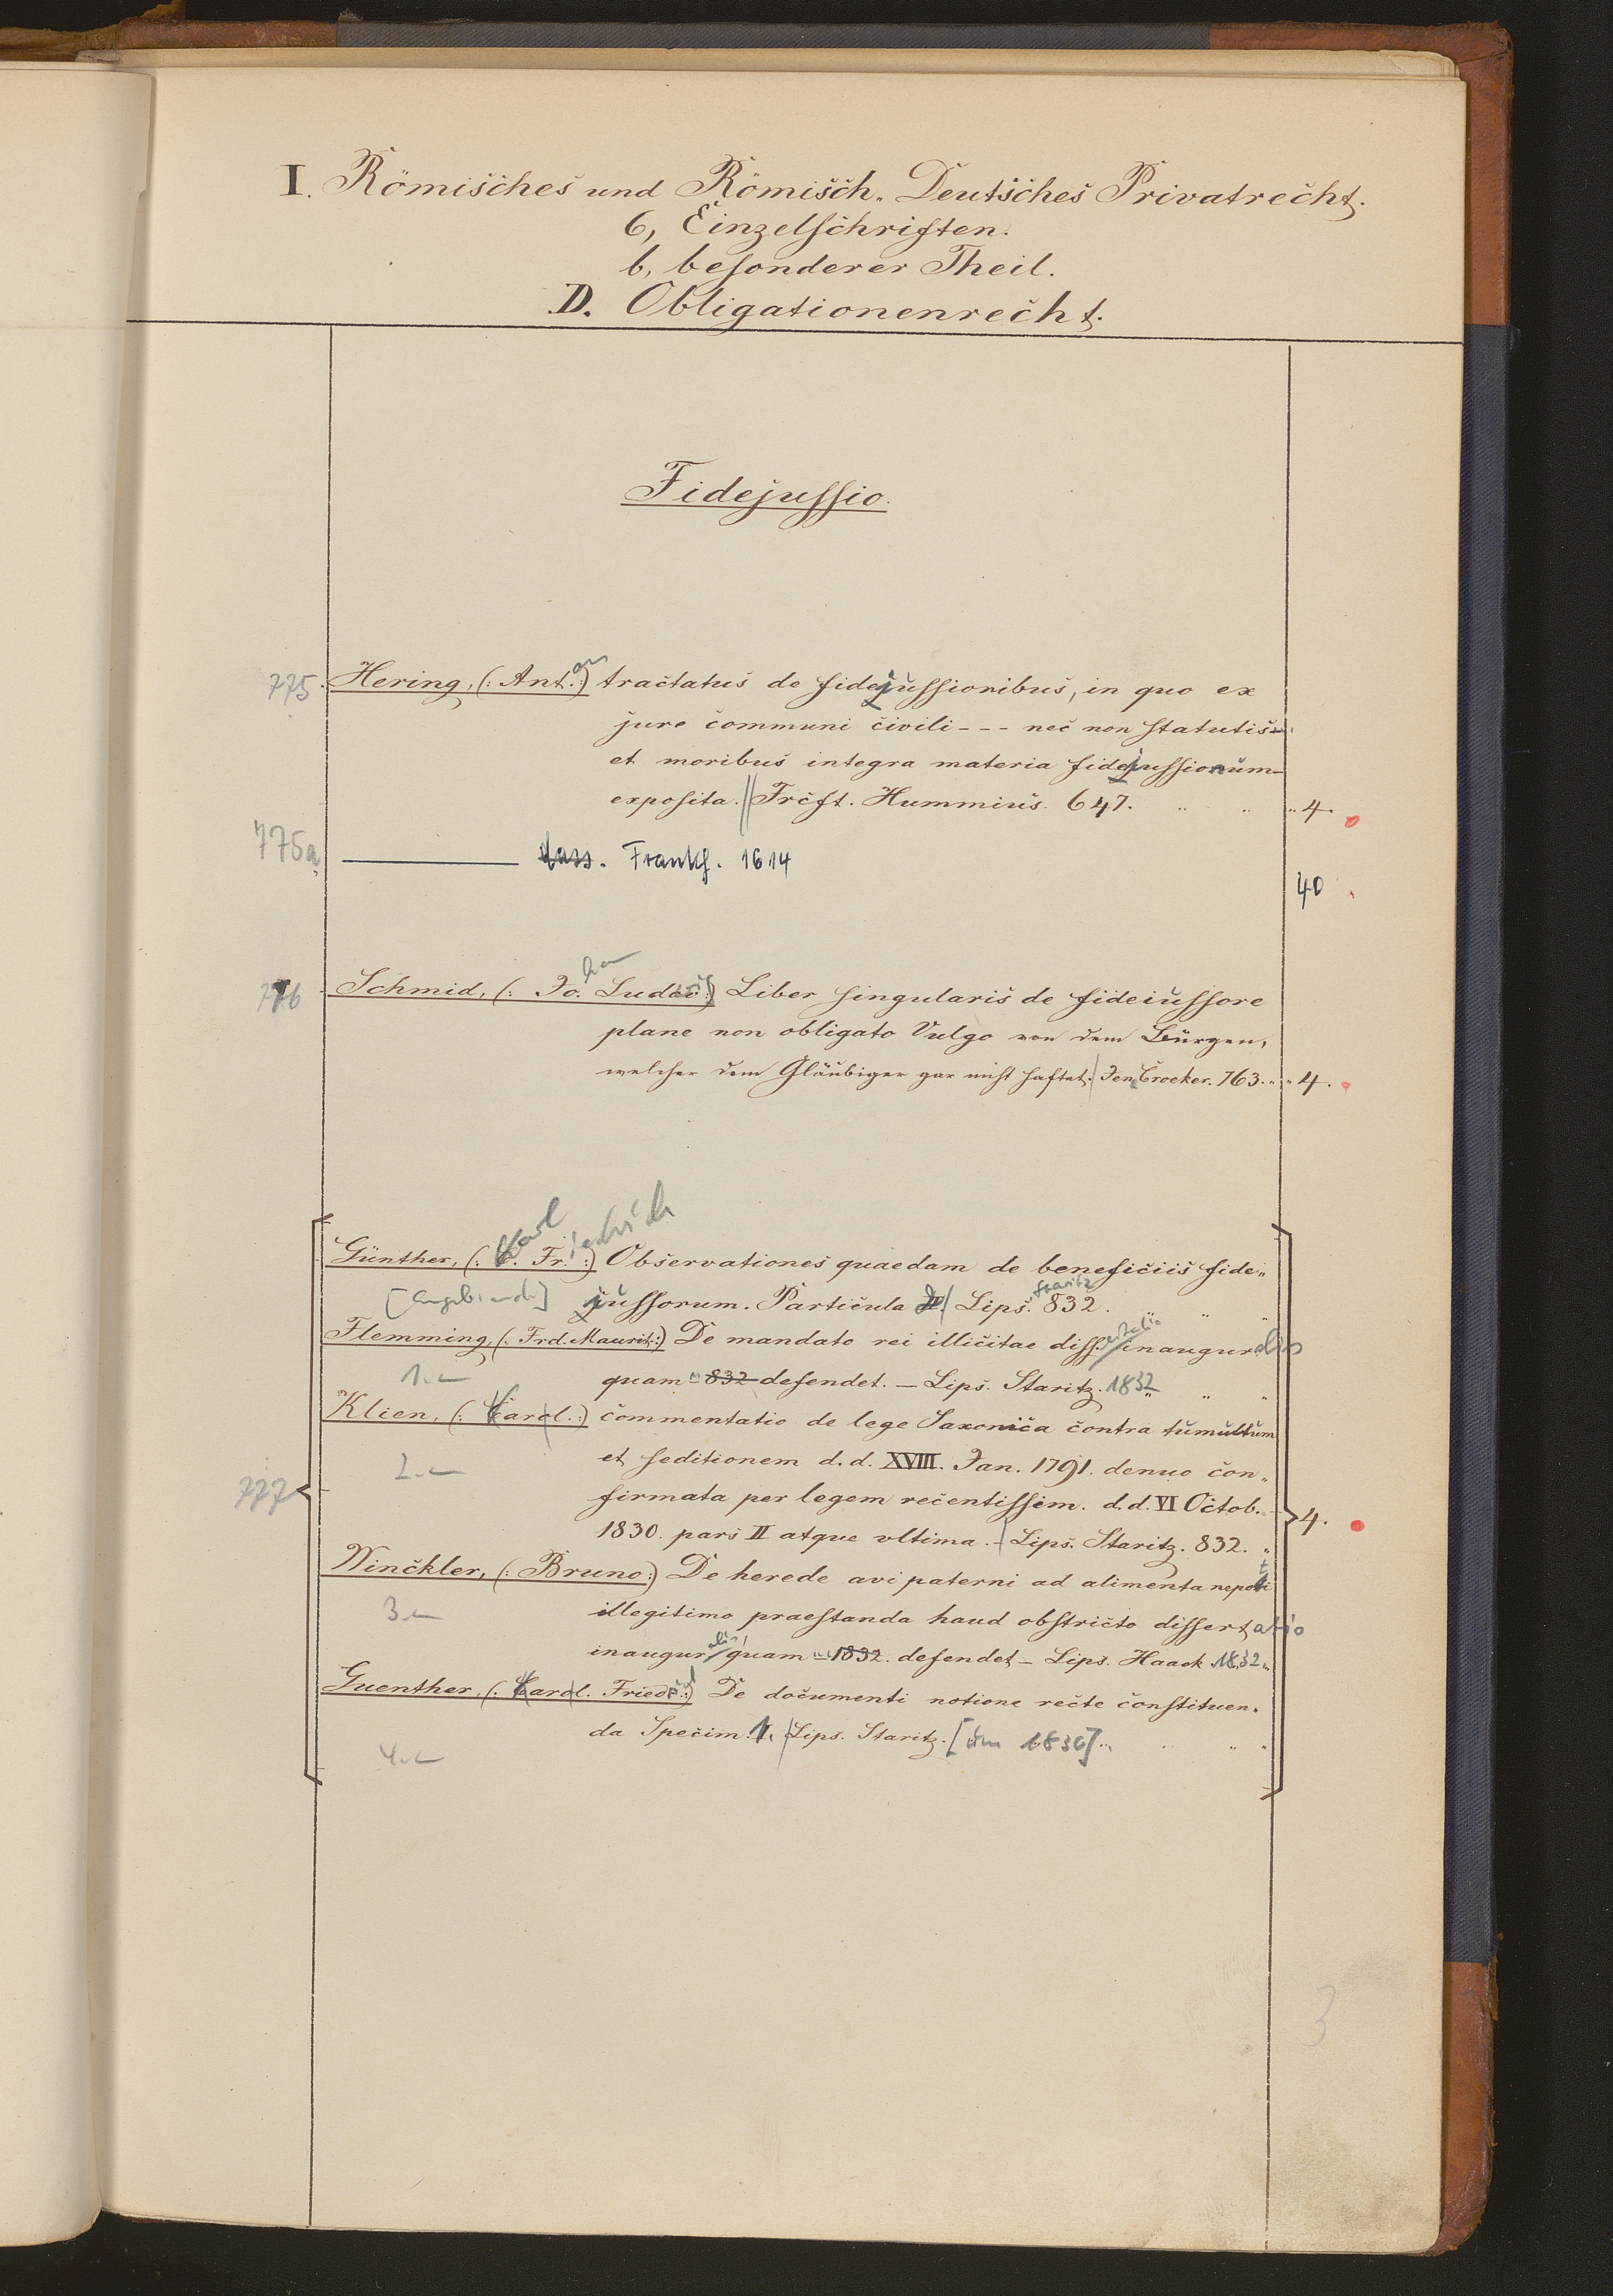 I. Römisches und Römisch-Deutsches Privatrecht.
6, Einzelschriften.
b, besonderer Theil.
D. Obligationenrecht.
Fidejussio.
775. Hering, (: Ant.:) tractatus de fidejussionibus, in quo ex
jure communi civili --- nec non statutis
et moribus integra materia fidejussionum
exposita. Frcft. Hummius. 647. " " " 4.
775a Frankf. 1614
40
776 Schmid, (: Jo. Ludov:) Liber singularis de fideiussore
plane non obligato Vulgo von dem Bürgen,
welcher dem Gläubiger gar nicht haftet. Jen. Croeker. 763. " " 4.
Karl iedrich
Günther, (: C. Fr. :) Observationes quaedam de beneficiis fide-
Staritz
[Angebunden] jussorum. Particula Lips. 832. " " "
Flemming, (: Frd. Maurit:) De mandato rei illicitae diss. inauguralis
1.- quam - 832 defendet. - Lips. Staritz. 1832 " "
Klien, (: Carol.:) commentatio de lege Saxonica contra tumultum
2.- et seditionem d. d. XVIII. Jan. 1791. denuo con-
777 firmata per legem recentissim. d. d. VI Octob. 4.
1830. pars II atque ultima. - Lips. Staritz. 832. "
Winckler, (: Bruno:) De herede avi paterni ad alimenta nepoti
3.- illegitimo praestanda haud obstricto dissertatio
inaugur alis quam - 1832. defendet - Lips. Haack 1832 "
Guenther, (: Carol. Friedr:) De documenti notione recte constituen-
da Specim. 1. Lips. Staritz. [um 1836] " " "
4.-
3